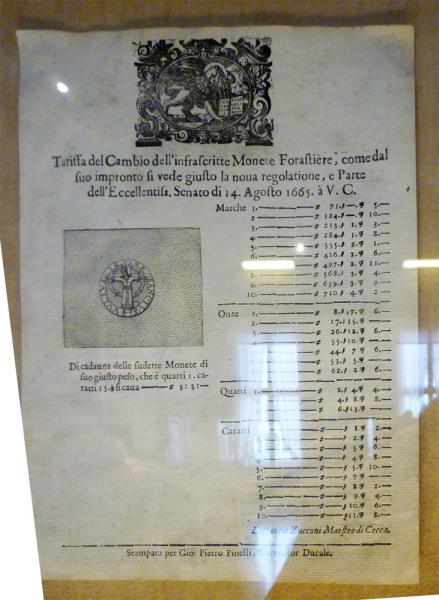 Tariffa del Cambio dell'infrascritte Monete Forastiere, come dal
suo impronto si vede giusto la noua regolatione, e Parte
dell'Eccellentiss. Senato di 14. Agosto 1665. à V. C.
Marche 1. 71. 5.
2 124. 10.
3. 213. 1. 3.
4. 284. 1. 8.
5. 355. 2. 1.
6. 426. 2. 6.
497. 2. 11.
8. 568. 3. 4.
9. 639. 3. 9.
10. 710. 4. 2.
Onze 1. 8. 17. 6.
2. 17. 15.
3. 26. 12. 6.
4. 35. 10.
5. 44. 7. 6.
6. 53. 5.
7. 62. 2. 6.
Di cadauna delle sudette Monete di
suo giusto peso, che è quarti 1. ca-
ratti 15. si caua 3: 3:
Quarti 1. 2. 4. 4.
2. 4. 8. 8.
6. 13.
Caratti 1. 2.
2. 4.
3. 6.
4. 8.
5. 5. 10.
6. 7.
7. 8. 2.
8. 9. 4.
9. 10. 6.
10. 11. 8.
Zucconi Maestro di Cecca.
Stampata per Gio: Pietro Pinelli, Stampator Ducale.